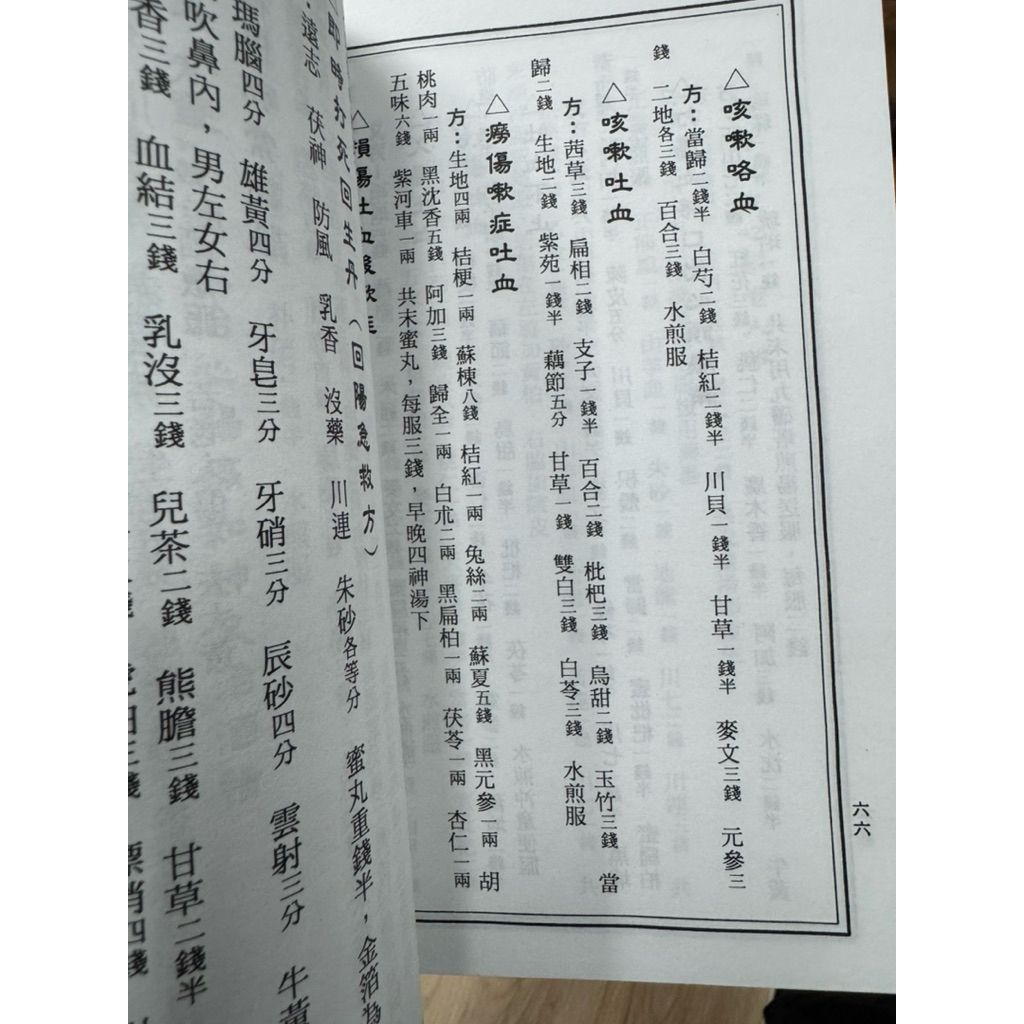 六六
△咳嗽咯血
方：當歸二錢半 白芍二錢 桔紅二錢半 川貝一錢半 甘草一錢半 麥文三錢 元參三
錢 二地各三錢 百合三錢 水煎服
△咳嗽吐血
方：茜草三錢 扁相二錢 支子一錢半 百合二錢 枇杷三錢 烏甜二錢 玉竹三錢 當
歸二錢 生地二錢 紫苑一錢半 藕節五分 甘草一錢 雙白三錢 白苓三錢 水煎服
△癆傷嗽症吐血
方：生地四兩 桔梗一兩 蘇棟八錢 桔紅一兩 兔絲二兩 蘇夏五錢 黑元參一兩 胡
桃肉一兩 黑沈香五錢 阿加三錢 歸全一兩 白朮二兩 黑扁柏一兩 茯苓一兩 杏仁一兩
五味六錢 紫河車一兩 共末蜜丸，每服三錢，早晚四神湯下
△損傷吐血
即時打死回生丹（回陽急救方）
遠志 茯神 防風 乳香 沒藥 川連 朱砂各等分 蜜丸重錢半，金箔為
瑪腦四分 雄黃四分 牙皂三分 牙硝三分 辰砂四分 雲射三分 牛黃
吹鼻內，男左女右
香三錢 血結三錢 乳沒三錢 兒茶二錢 熊膽三錢 甘草二錢半